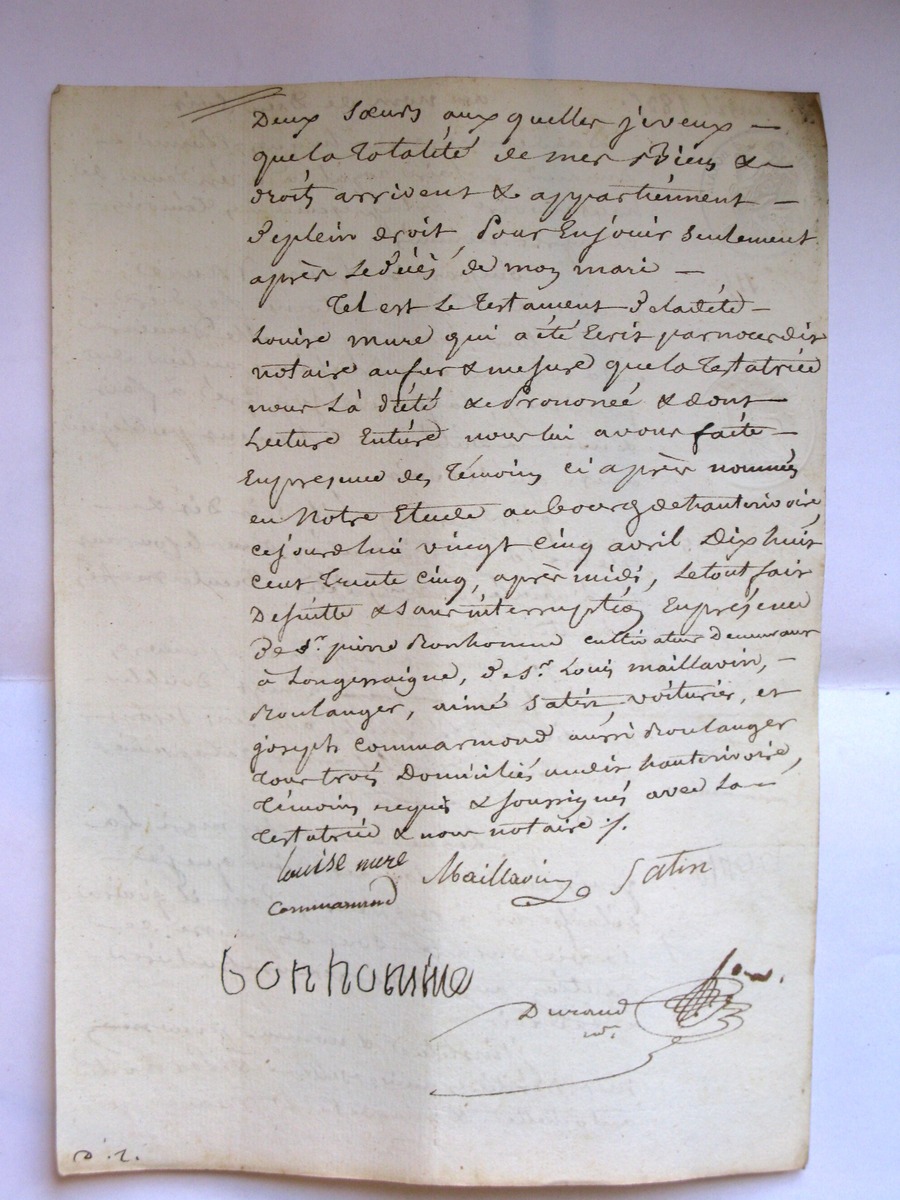 Deux sœurs auxquelles je veux —
que la Totalité de mes Biens &
droits arrivent & appartiennent —
de plein droit, Pour En jouir seulement
après le décès de mon mari —
Tel est Le Testament de la dite —
Louise mure qui a été Ecrit par nous dit
notaire au fur & mesure que la Testatrice
nous L'a dicté & Prononcé & dont
Lecture Entière nous lui avons faite —
En presence des Témoins ci après nommés
en Notre Etude au bourg de hauterivoire,
ce jourd'hui vingt cinq avril Dix huit
cent Trente Cinq, après midi, Le tout fait
De suitte & sans interruption En présence
De Sr. pierre Bonhomme cultivateur Demeurant
à Longessaigne, de Sr. Louis maillavin, —
Boulanger, aimé Satin, voiturier, et
joseph Commarmond aussi Boulanger
Tous trois Domiciliés audit hauterivoire,
Témoins requis & soussignés avec La —
Testatrice & nous notaire ./.
louise mure Maillavin Satin
Commarmond
bonhomme
Durand
nre.
D. L.